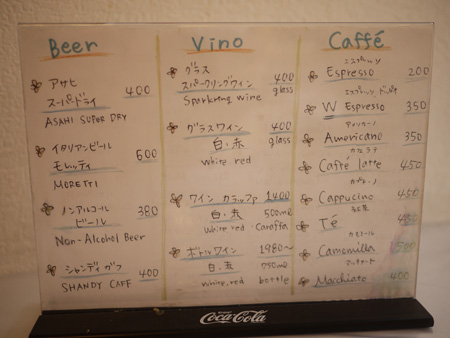 Beer
アサヒ
スーパードライ 400
ASAHI SUPER DRY
イタリアンビール
モレッティ 600
MORETTI
ノンアルコール
ビール 380
Non-Alcohol Beer
シャンディガフ 400
SHANDY GAFF
Vino
グラス
スパークリングワイン 400
Sparkring wine glass
グラスワイン 400
白・赤 glass
white・red
ワイン カラッファ 1400
白・赤 500ml
white・red・Caraffa
ボトルワイン 1980〜
白・赤 750ml
white・red bottle
Caffé
エスプレッソ
Espresso 200
エスプレッソ ドッピオ
W Espresso 350
アメリカーノ
Americano 350
カフェラテ
Caffé latte 450
カプチーノ
Cappucino 450
紅茶
Té 480
カモミール
Camomilla
マキアート
Macchiato 400
Coca-Cola